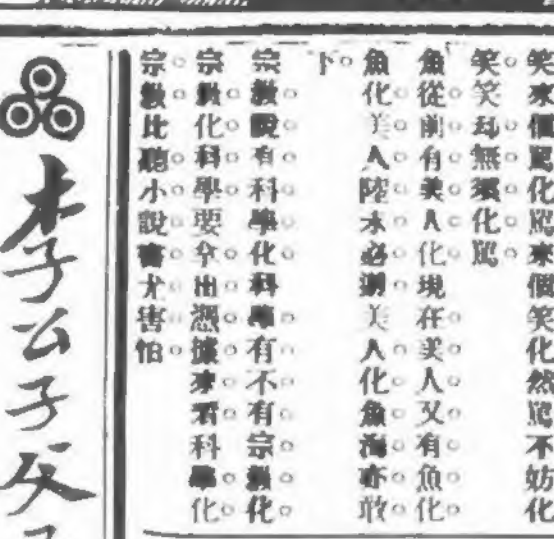 笑來個罵化罵來個笑化然罵不妨化
笑笑却無須化罵
魚從前有美人化現在美人又有魚化
魚化美人陸必測美人化魚海亦敢
宗教說有科學化科學有不有宗教化
宗教化科學要出憑據來看科學化
宗教比聽小說書尤害怕
李公子父